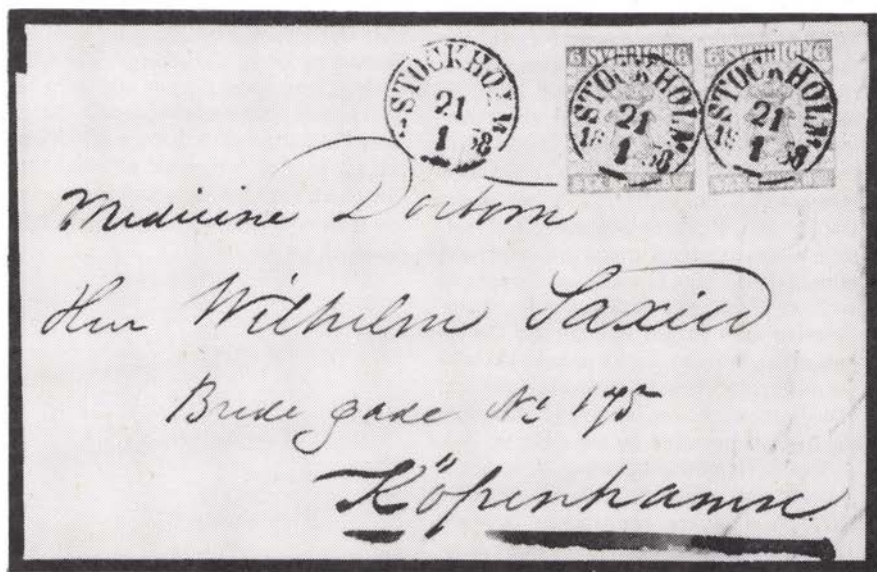 STOCKHOLM
21
1
58
6 SVERIGE 6
STOCKHOLM
21
1
18 58
6 SVERIGE 6
STOCKHOLM
21
1
18 58
Medicine Doctorn
Herr Wilhelm
Brede gade No 175
Köpenhamn